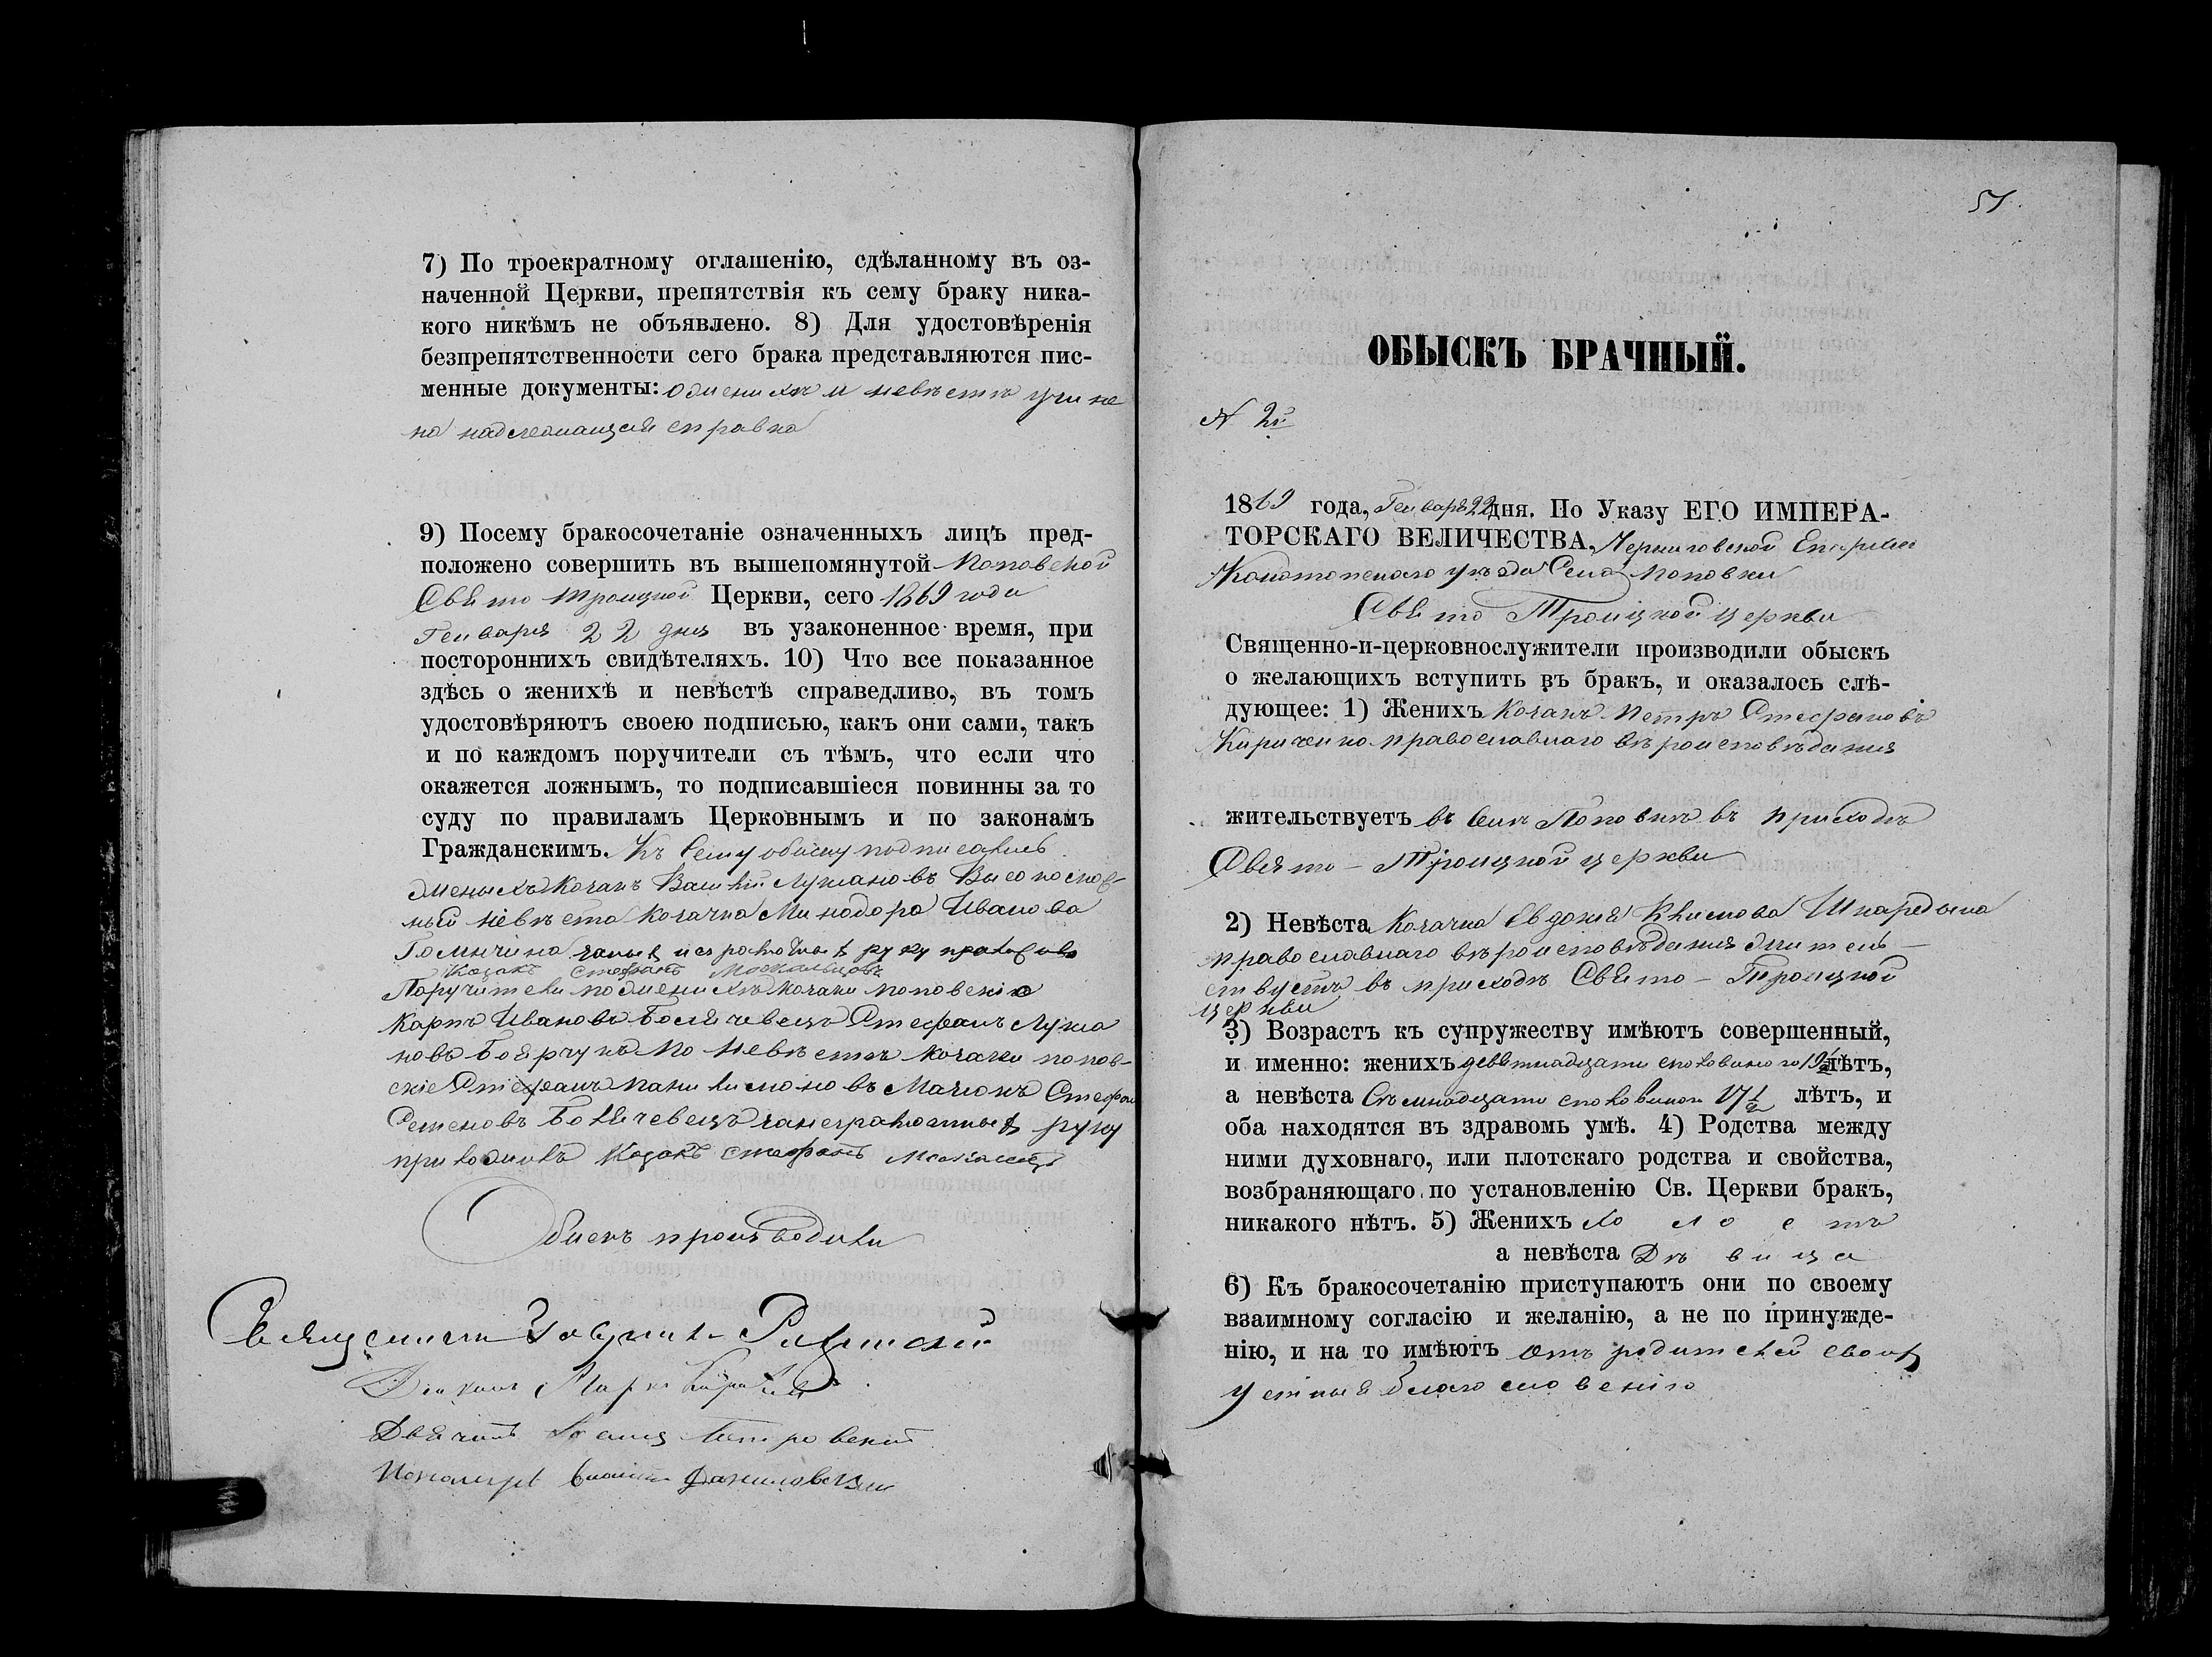 7) По троекратному оглашенію, сдѣланному въ оз-
наченной Церкви, препятствія къ сему браку ника-
кого никѣмъ не объявлено. 8) Для удостовѣренія
безпрепятственности сего брака представляются пис-
менные документы: о женихѣ и невѣстѣ учине
на надлежащая справка
9) Посему бракосочетаніе означенныхъ лицъ пред-
положено совершить въ вышепомянутой Поповской
Свято Троицкой Церкви, сего 1869 года
Генваря 22 дня въ узаконенное время, при
постороннихъ свидѣтеляхъ. 10) Что все показанное
здѣсь о женихѣ и невѣстѣ справедливо, въ томъ
удостовѣряютъ своею подписью, какъ они сами, такъ
и по каждомъ поручители съ тѣмъ, что если что
окажется ложнымъ, то подписавшіеся повинны за то
суду по правиламъ Церковнымъ и по законамъ
Гражданскимъ. Къ сему обыску подписались
женыхъ козакъ Василій Лукіановъ
невѣста козачка Минодора Иванова
руку
Козакъ Стефанъ Москальцовъ
Поручители по женихѣ козаки поповскіе
Карпъ Ивановъ Болячевецъ Стефанъ Лукіа
новъ Боярчукъ По невѣстѣ козаки попов-
скіе Стефанъ Пантилимоновъ Стефан
Семеновъ Болячевецъ руку
приложилъ Козакъ Стефанъ
Обыскъ производили
Священникъ
Діаконъ Марко
Дьячекъ
Пономарь Даниловскій
51.
ОБЫСКЪ БРАЧНЫЙ.
N 2й
1869 года, Генваря 22 дня. По Указу ЕГО ИМПЕРА-
ТОРСКАГО ВЕЛИЧЕСТВА, Черниговской Епархіи
Конотопскаго уѣзда Села Поповки
Свято Троицкой церкви
Священно-и-церковнослужители производили обыскъ
о желающихъ вступить въ бракъ, и оказалось слѣ-
дующее: 1) Женихъ Козакъ Петръ Стефановъ
Кириченко православнаго вѣроисповѣданія
жительствуетъ въ селѣ Поповкѣ въ приходѣ
Свято-Троицкой церкви
2) Невѣста Козачка Евдокія Климова
православнаго вѣроисповѣданія житель-
ствуетъ въ приходѣ Свято-Троицкой
церкви
3) Возрастъ къ супружеству имѣютъ совершенный,
и именно: женихъ девятнадцати споловиною 19½ лѣтъ,
а невѣста Семнадцати споловиною 17½ лѣтъ, и
оба находятся въ здравомъ умѣ. 4) Родства между
ними духовнаго, или плотскаго родства и свойства,
возбраняющаго по установленію Св. Церкви бракъ,
никакого нѣтъ. 5) Женихъ холостъ
а невѣста Дѣвица
6) Къ бракосочетанію приступаютъ они по своему
взаимному согласію и желанію, а не по принужде-
нію, и на то имѣютъ отъ родителей своихъ
устныя благословенія